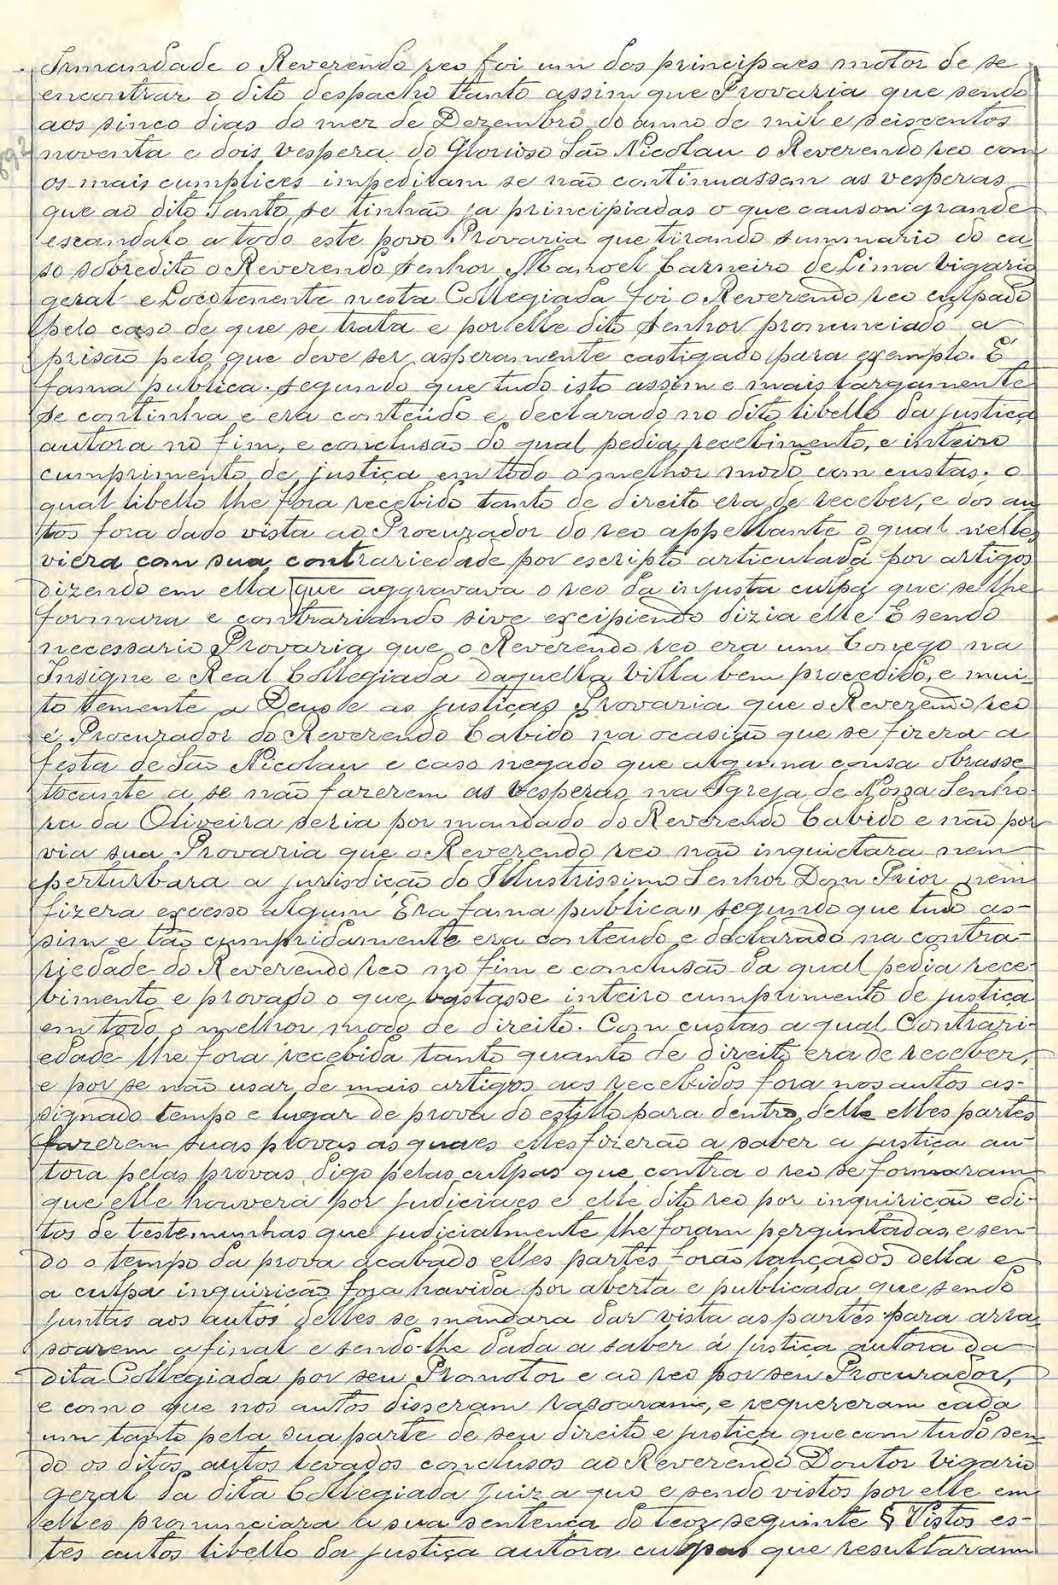 Irmandade o Reverendo reo foi um dos principaes motor de se
encontrar o dito despacho tanto assim que Provaria que sendo
aos sinco dias do mez de Dezembro do anno de mil e seiscentos
noventa e dois, vespera do Glorioso São Nicolau o Reverendo reo com
os mais cumplices impediram se não continuassem as vesperas
que ao dito Santo se tinhão ja principiadas o que causou grande
escandalo a todo este povo Provaria que tirando summario do ca-
so sobredito o Reverendo Senhor Manoel Carneiro de Lima Vigario
geral e Locotenente nesta Collegiada foi o Reverendo reo culpado
pelo caso de que se trata e por elle dito Senhor pronunciado a
prisão pelo que deve ser asperamente castigado para exemplo. É
fama publica. Segundo que tudo isto assim e mais largamente
se continha e era conteúdo e declarado no dito libello da justiça
autora no fim, e conclusão do qual pedia recebimento, e inteiro
cumprimento de justiça em todo o melhor modo com custas. O
qual libello lhe fora recebido tanto de direito era de receber, e dos au-
tos fora dado vista ao Procurador do reo appellante o qual nelle
viera com sua contrariedade por escripto articulada por artigos
dizendo em ella que aggravava o reo da injusta culpa que se lhe
formara e contrariando sive excipiendo dizia elle E sendo
necessario Provaria que o Reverendo reo era um Conego na
Insigne e Real Collegiada daquella Villa bem procedido, e mui-
to temente a Deus e as justiças Provaria que o Reverendo reo
é Procurador do Reverendo Cabido na ocasião que se fizera a
festa de São Nicolau e caso negado que alguma cousa obrasse
tocante a se não fazerem as Vesperas na Igreja de Nossa Senho-
ra da Oliveira seria por mandado do Reverendo Cabido e não por
via sua Provaria que o Reverendo reo não inquietara nem
perturbara a jurisdicção do Illustrissimo Senhor Dom Prior nem
fizera excesso algum "Era fama publica" segundo que tudo as-
sim e tão cumpridamente era contendo e declarado na contra-
riedade do Reverendo reo no fim e conclusão da qual pedia rece-
bimento e provado o que bastasse inteiro cumprimento de justiça
em todo o melhor modo de direito. Com custas a qual Contrari-
edade lhe fora recebida tanto quanto de direito era de receber,
e por se não usar de mais artigos aos recebidos fora nos autos as-
signado tempo e lugar de prova do estillo para dentro delle elles partes
fazerem suas provas as quaes elles fizerão a saber a justiça au-
tora pelas provas digo pelas culpas que contra o reo se formaram
que elle houvera por judiciaes e elle dito reo por inquirição edi-
tos de testemunhas que judicialmente lhe foram perguntadas, e sen-
do o tempo da prova acabado elles partes forão lançados della e
a culpa inquirição foja havida por aberta e publicada que sendo
juntas aos autos delles se mandara dar vista as partes para arra-
soarem afinal e sendo-lhe dada a saber á justiça autora da
dita Collegiada por seu Promotor e ao reo por seu Procurador,
e com o que nos autos disseram rasoaram, e requereram cada
um tanto pela sua parte de seu direito e justiça que com tudo sen-
do os ditos autos levados conclusos ao Reverendo Doutor Vigario
geral da dita Collegiada Juiz a quo e sendo vistos por elle em
elles pronunciara a sua sentença do teor seguinte § Vistos es-
tes autos libello da justiça autora culpas que resultaram